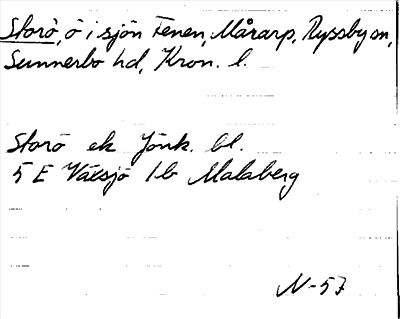 Storö, ö i sjön Fenen, Mårarp, Ryssby sn,
Sunnerbo hd, Kron. l.
Storö ek Jönk. bl.
5 E Växsjö 1b Malaberg
N-57